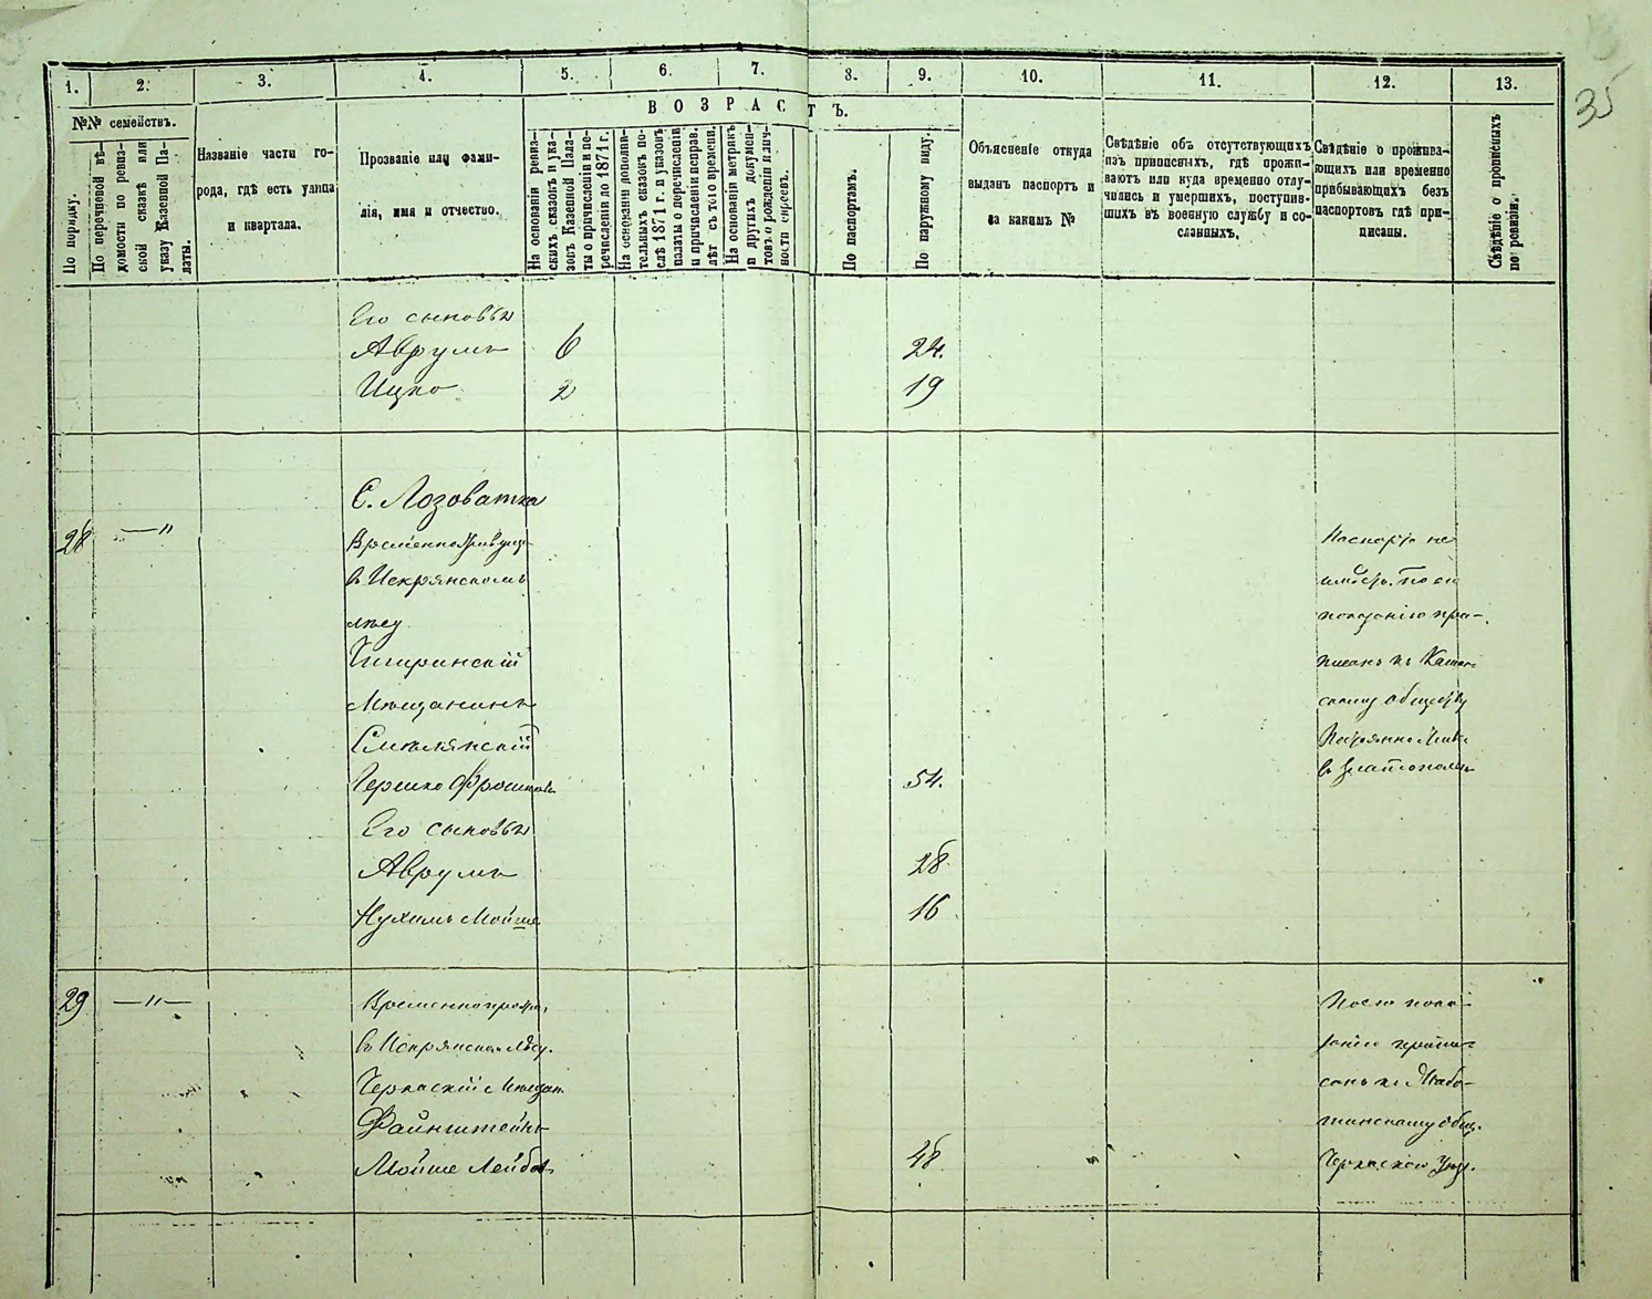 35
1. 2. 3. 4. 5. 6. 7. 8. 9. 10. 11. 12. 13.
№№ семействъ.
По порядку.
По перечневой вѣ-
домости по ревиз-
ской сказкѣ или
указу Казенной Па-
латы.
Названіе части го-
рода, гдѣ есть улица
и квартала.
Прозваніе или фами-
лія, имя и отчество.
ВОЗРАСТЪ.
На основаніи ревиз-
скихъ сказокъ и ука-
зовъ Казенной Пала-
ты о причисленіи и пе-
речисленіи до 1871 г.
На основаніи дополни-
тельныхъ сказокъ по-
слѣ 1871 г. и указовъ
палаты о перечисленіи
и причисленіи исправ.
лѣт съ того времени.
На основаніи метрикъ
и другихъ докумен-
товъ о рожденіи и лич-
ности евреевъ.
По паспортамъ.
По наружному виду.
Объясненіе откуда
выданъ паспортъ и
за какимъ №
Свѣдѣніе объ отсутствующихъ
изъ приписныхъ, гдѣ прожи-
ваютъ или куда временно отлу-
чились и умершихъ, поступив-
шихъ въ военную службу и со-
сланныхъ.
Свѣдѣніе о прожива-
ющихъ или временно
прибывающихъ безъ
паспортовъ гдѣ при-
писаны.
Свѣдѣніе о прописныхъ
по ревизіи.
Его сыновья
Аврумъ 6 24.
Ицко 2 19
С. Лозоватка
28 —"
въ Искрянскомъ
лѣсу
Чигиринскій
Мѣщанинъ
Смѣлянскій
Гершко 54.
Его сыновья
Аврумъ 28
Нухимъ Мойше 16
Паспорта не
имѣетъ. По ею
показанію при-
писанъ къ
скому обществу
въ Златополѣ
29 —"—
Временно прожи.
въ Искрянском лѣсу.
Черкаскій Мѣщан.
Файнштейнъ
Мойше Лейбов 48
По его пока-
занію припи-
санъ къ Жабо-
тинскому общ.
Черкаскаго Уѣз.